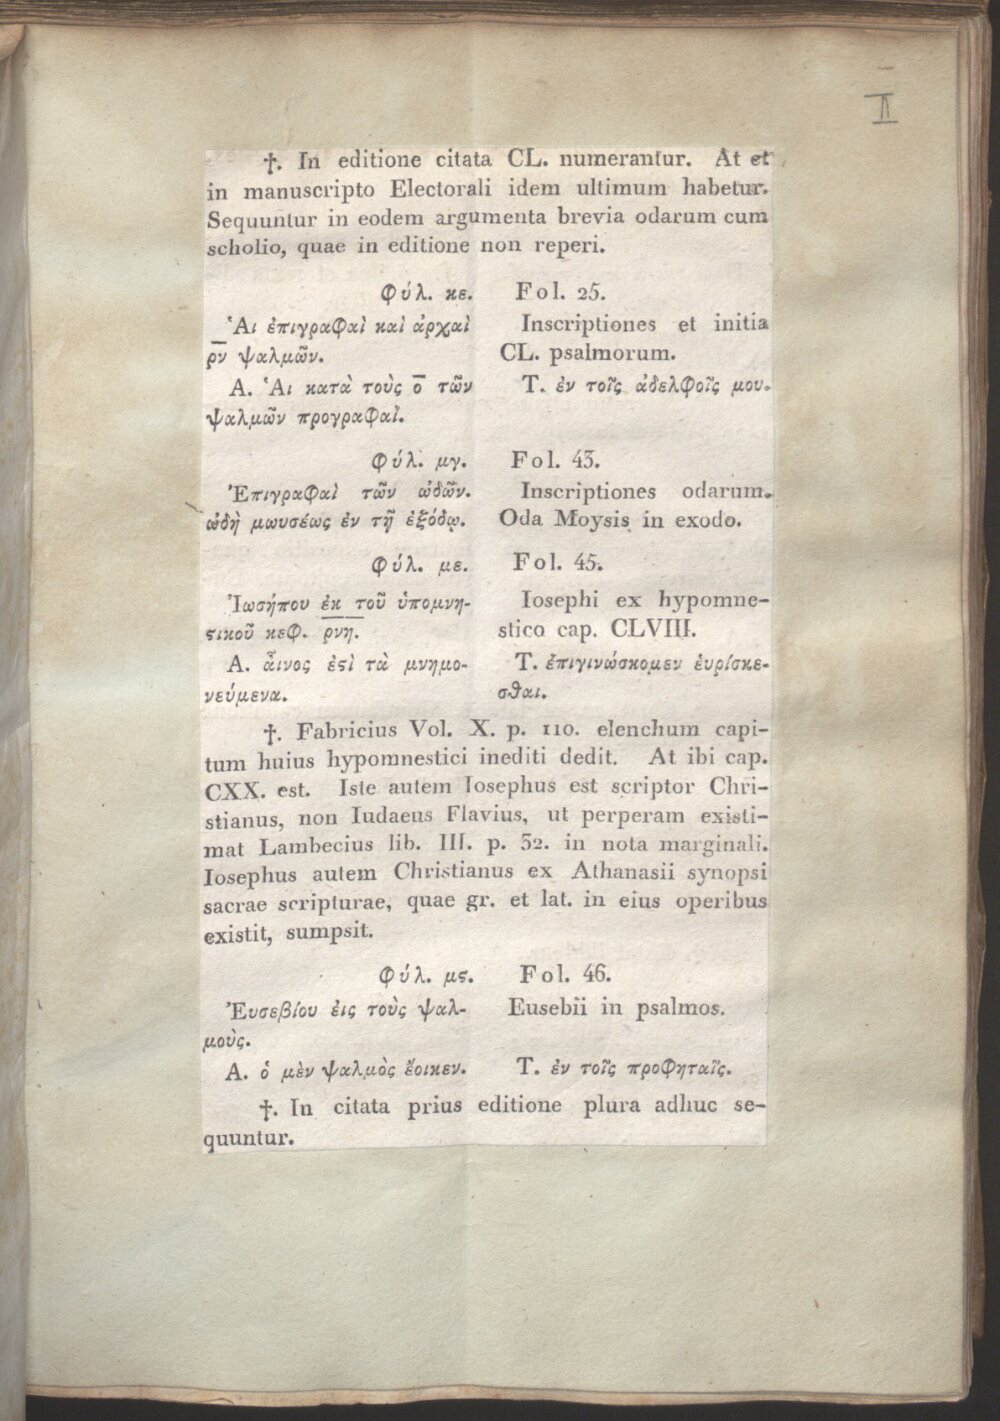 II
†. In editione citata CL. numerantur. At et
in manuscripto Electorali idem ultimum habetur.
Sequuntur in eodem argumenta brevia odarum cum
scholio, quae in editione non reperi.
Φύλ. κε. Fol. 25.
Ἁι ἐπιγραφαὶ καὶ ἀρχαὶ Inscriptiones et initia
ρν̅ ψαλμῶν. CL. psalmorum.
Α. Ἁι κατὰ τοὺς ο̅ τῶν Τ. ἐν τοῖς ἀδελφοῖς μου.
ψαλμῶν προγραφαί.
Φύλ. μγ. Fol. 43.
Ἐπιγραφαὶ τῶν ὠδῶν. Inscriptiones odarum.
ὠδὴ μωυσέως ἐν τῇ ἐξόδῳ. Oda Moysis in exodo.
Φύλ. με. Fol. 45.
Ἰωσήπου ἐκ τοῦ ὑπομνη- Iosephi ex hypomne-
ϛικοῦ κεφ. ρνη. stico cap. CLVIII.
Α. ἆινος ἐϛὶ τὰ μνημο- Τ. ἐπιγινώσκομεν ἑυρίσκε-
νεύμενα. σθαι.
†. Fabricius Vol. X. p. 110. elenchum capi-
tum huius hypomnestici inediti dedit. At ibi cap.
CXX. est. Iste autem Iosephus est scriptor Chri-
stianus, non Iudaeus Flavius, ut perperam existi-
mat Lambecius lib. III. p. 32. in nota marginali.
Iosephus autem Christianus ex Athanasii synopsi
sacrae scripturae, quae gr. et lat. in eius operibus
existit, sumpsit.
Φύλ. μϛ. Fol. 46.
Ἐυσεβίου ἐις τοὺς ψαλ- Eusebii in psalmos.
μοὺς.
Α. ὁ μὲν ψαλμὸς ἔοικεν. Τ. ἐν τοῖς προφηταῖς.
†. In citata prius editione plura adhuc se-
quuntur.